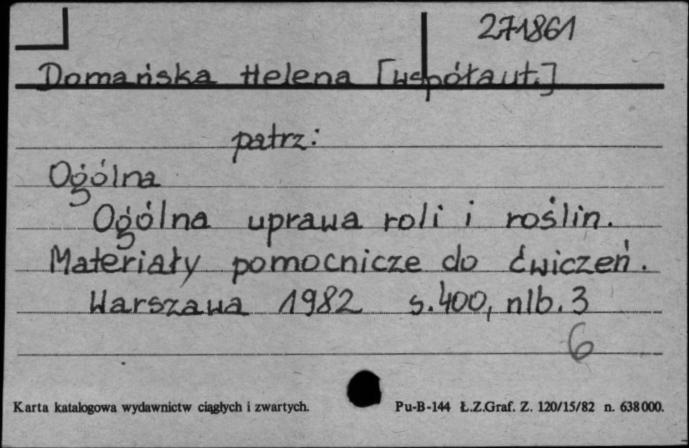 271861
Domańska Helena [współaut.]
patrz:
Ogólna
Ogólna uprawa roli i roślin.
Materiały pomocnicze do ćwiczeń.
Warszawa 1982 s.400, nlb.3
6
Karta katalogowa wydawnictw ciągłych i zwartych. Pu-B-144 Ł.Z.Graf. Z. 120/15/82 n. 638000.